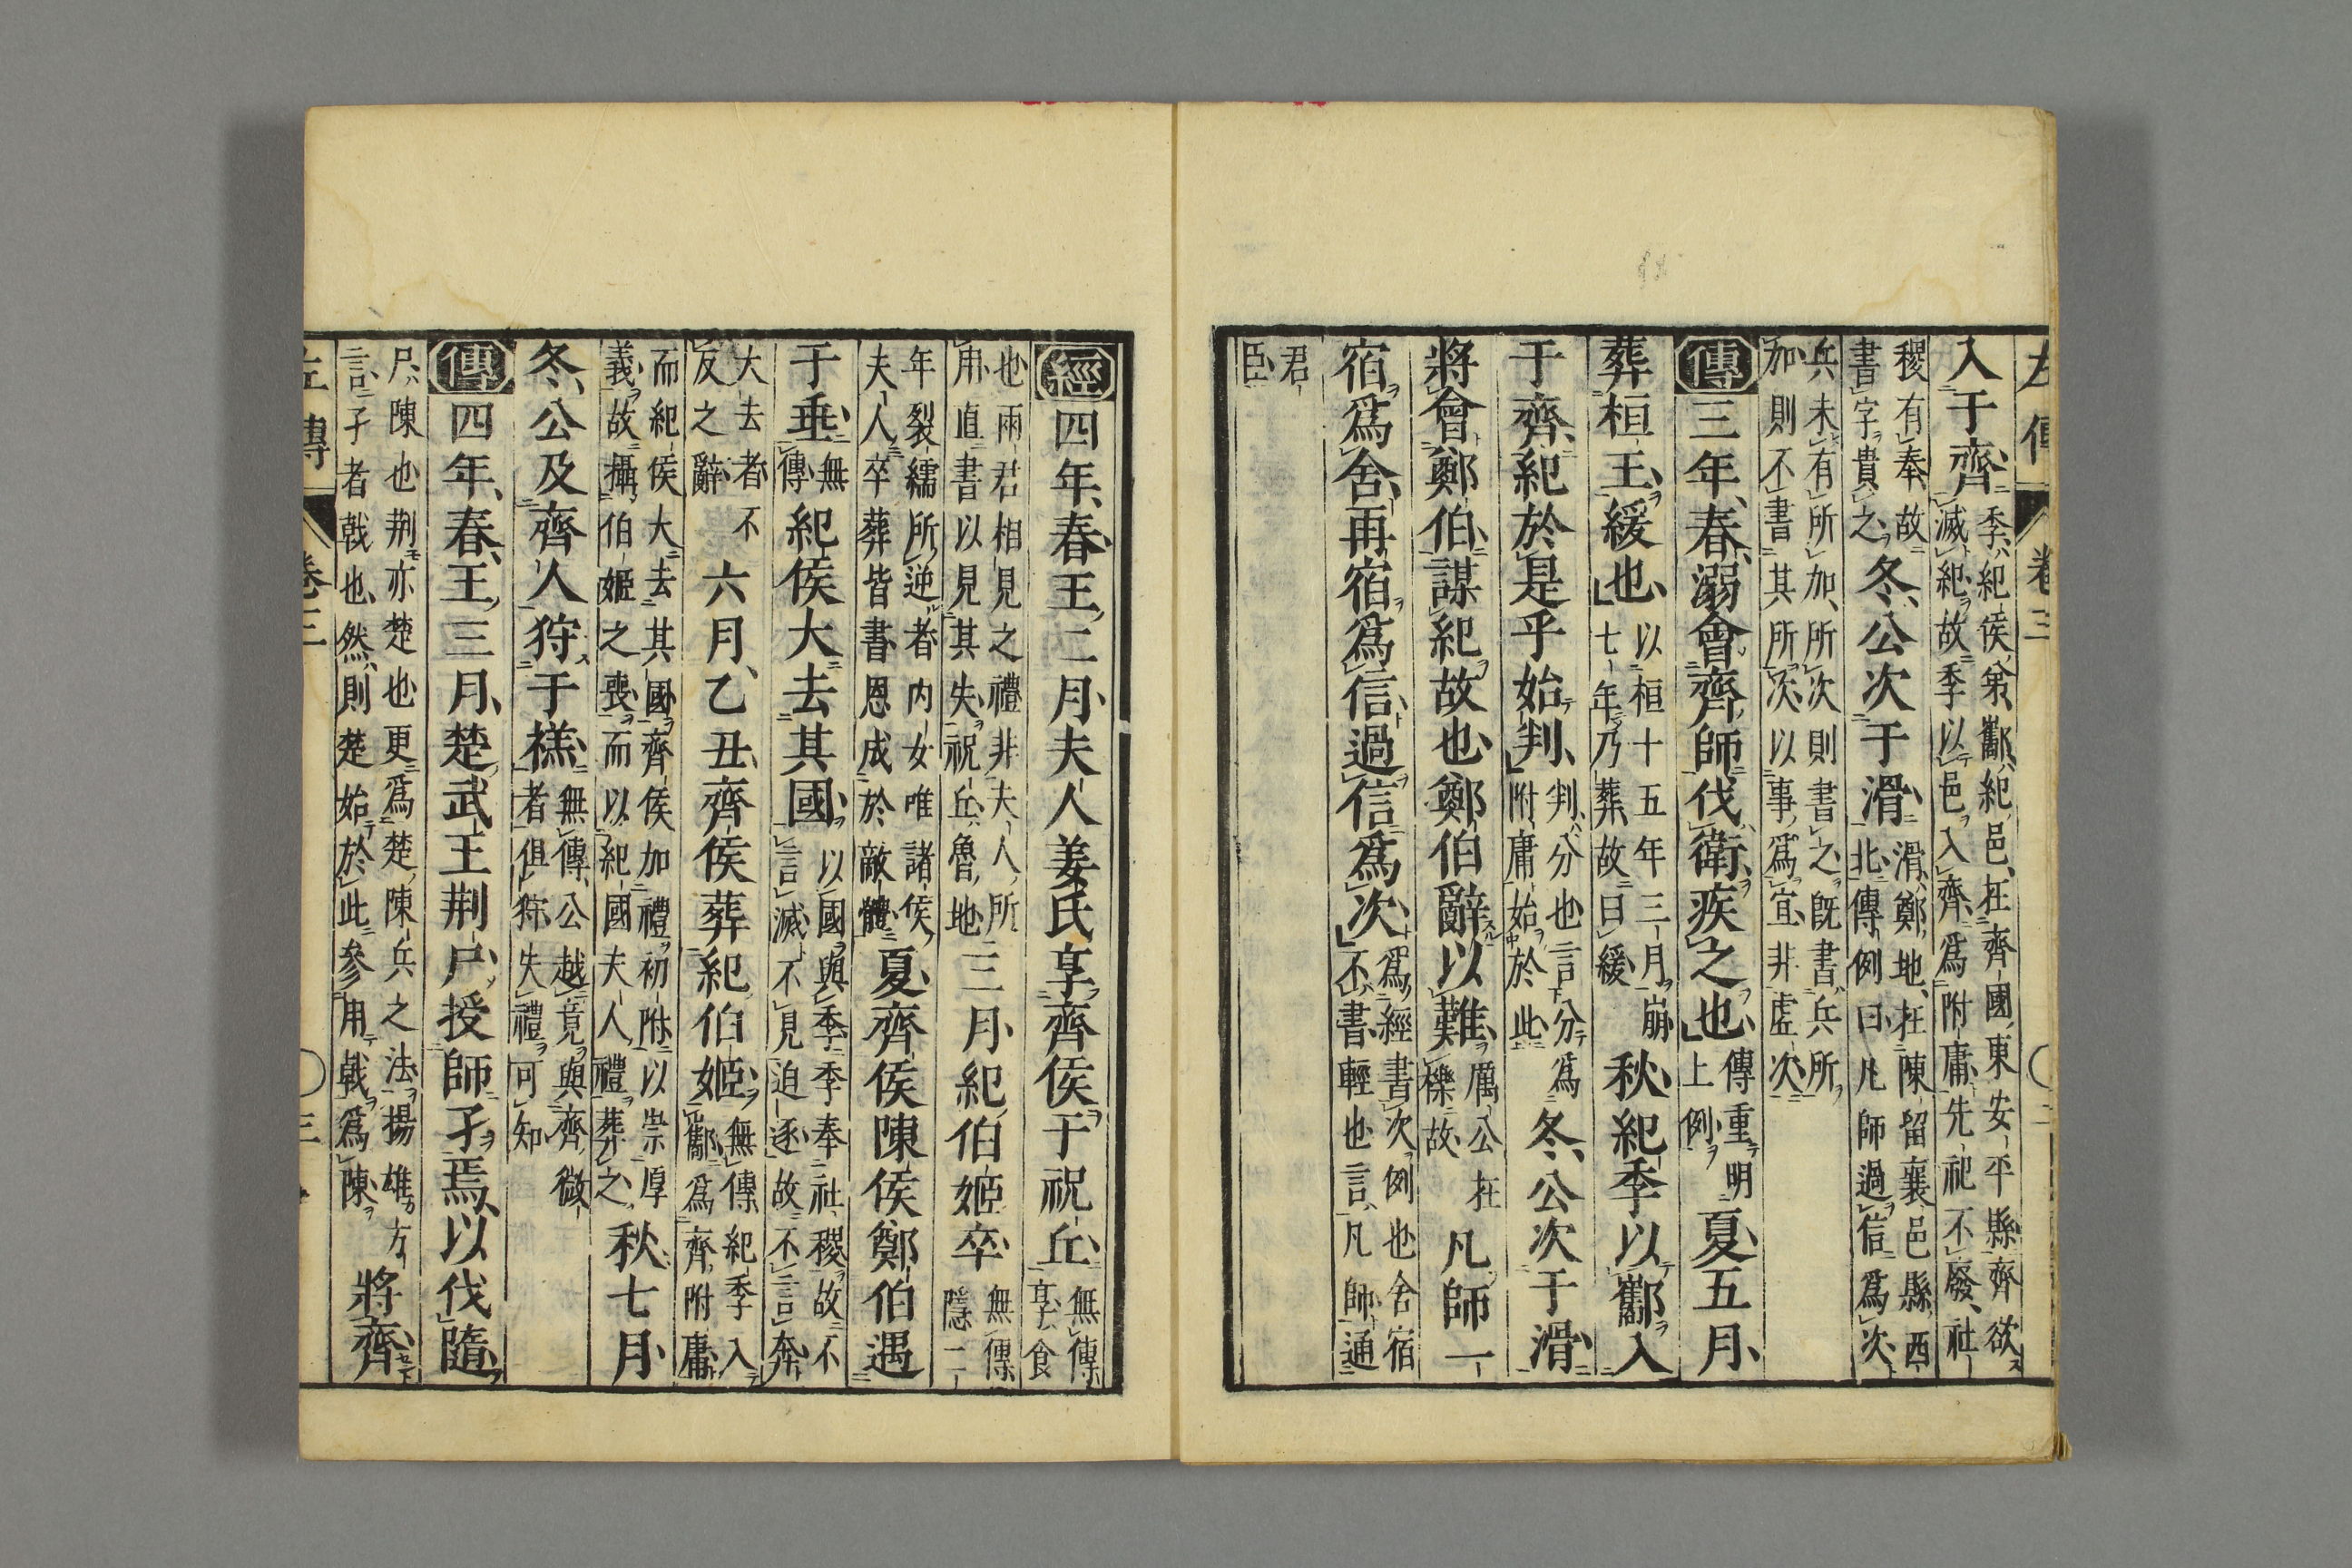 左傳 卷三
入于齊季紀侯弟酅紀邑在齊國東安平縣齊欲滅紀故季以邑入齊爲附庸先祀不廢社
稷有奉故書字貴之冬公次于滑滑鄭地在陳留襄邑縣西北傳例曰凡師過信爲次
兵未有所加所次則書之既書兵所加則不書其所次以事爲宜非虛次
傳三年春溺會齊師伐衛疾之也傳重明上例夏五月
葬桓王緩也以桓十五年三月崩七年乃葬故曰緩秋紀季以酅入
于齊紀於是乎始判判分也言分爲附庸始於此冬公次于滑
將會鄭伯謀紀故也鄭伯辭以難厲公在櫟故凡師一
宿爲舍再宿爲信過信爲次爲經書次例也舍宿不書輕也言凡師通
君臣
經四年春王二月夫人姜氏享齊侯于祝丘無傳享食
也兩君相見之禮非夫人所用直書以見其失祝丘魯地三月紀伯姬卒無傳隱二
年裂繻所逆者内女唯諸侯夫人卒葬皆書恩成於敵體夏齊侯陳侯鄭伯遇
于垂無傳紀侯大去其國以國與季季奉社稷故不言滅不見迫逐故不言奔
大去者不反之辭六月乙丑齊侯葬紀伯姬無傳紀季入酅爲齊附庸
而紀侯大去其國齊侯加禮初附以崇厚義故攝伯姬之喪而以紀國夫人禮葬之秋七月
冬公及齊人狩于禚無傳公越竟與齊微者俱狩失禮可知
傳四年春王三月楚武王荆尸授師孑焉以伐隨
尸陳也荆亦楚也更爲楚陳兵之法揚雄方言孑者戟也然則楚始於此參用戟爲陳將齊
左傳 卷三 三